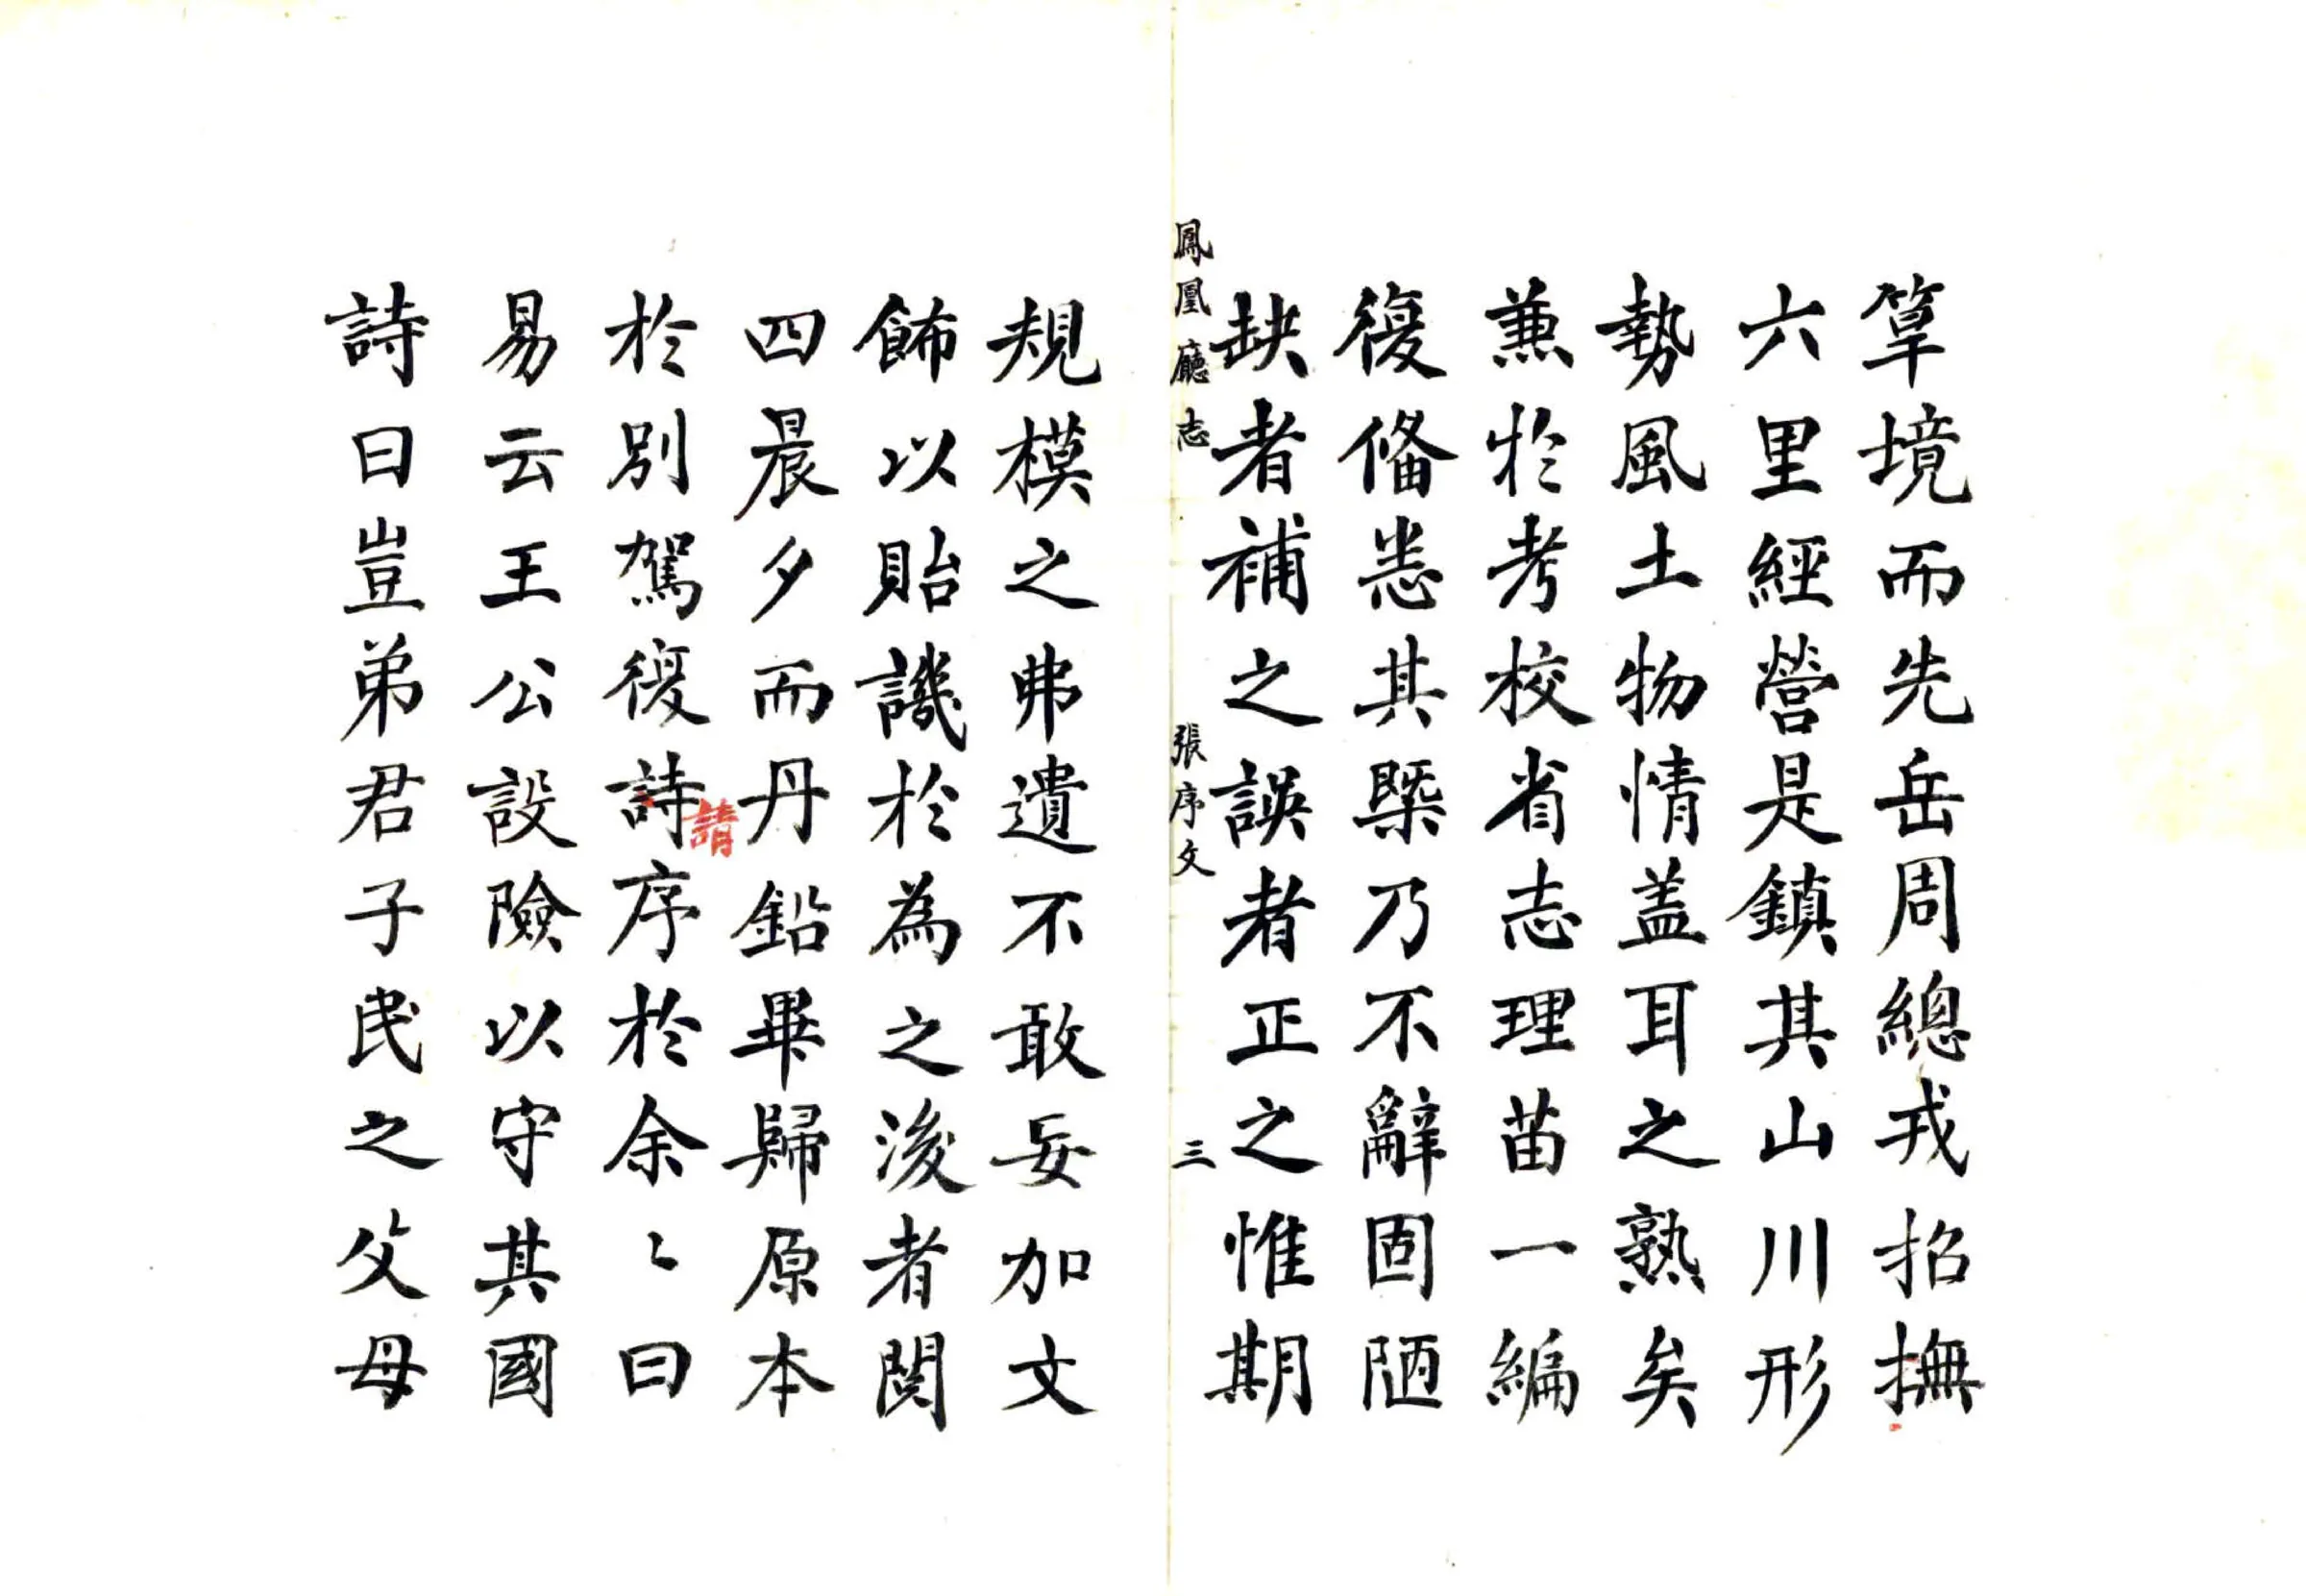 筸境而先岳周總戎招撫
六里經營是鎮其山川形
勢風土物情盖耳之熟矣
兼於考校省志理苗一編
復俻悉其槩乃不辭固陋
缺者補之誤者正之惟期
鳳凰廳志 張序文 三
規模之弗遺不敢妄加文
飾以貽譏於為之後者閱
四晨夕而丹鉛畢歸原本
於別駕復詩序於余〻曰
請
易云王公設險以守其國
詩曰豈弟君子民之父母